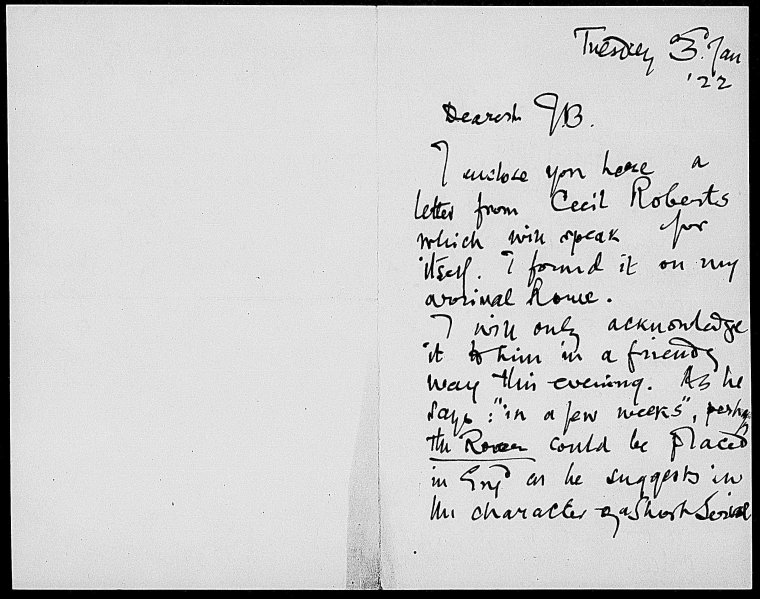 Tuesday 3. Jan
'22
Dearest JB.
I enclose you here a
letter from Cecil Roberts
which will speak for
itself. I found it on my
arrival home.
I will only acknowledge
it to him in a friendly
way this evening. As he
says: "in a few weeks", perhaps
the Rover could be placed
in Engd as he suggests in
the character of a Short Serial